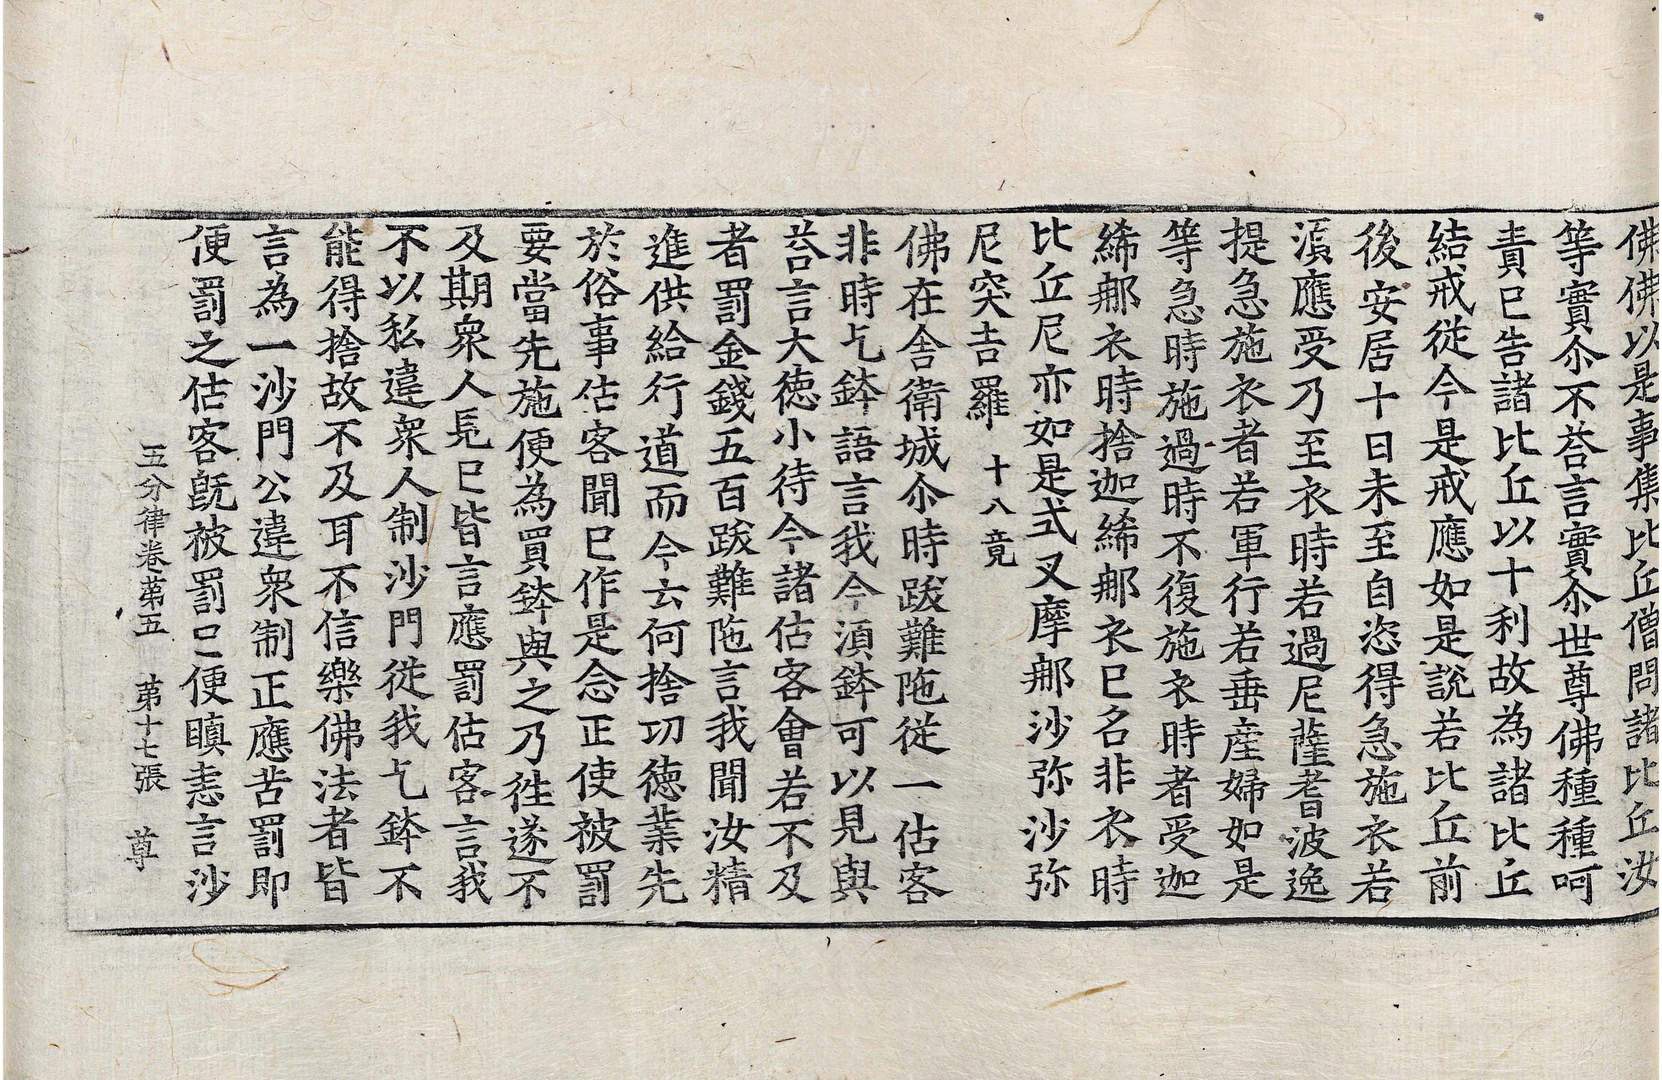 佛佛以是事集比丘僧問諸比丘汝
等實尒不荅言實尒世尊佛種種呵
責已告諸比丘以十利故為諸比丘
結戒從今是戒應如是說若比丘前
後安居十日未至自恣得急施衣若
湏應受乃至衣時若過尼薩耆波逸
提急施衣者若軍行若垂産婦如是
等急時施過時不復施衣時者受迦
絺郍衣時捨迦絺郍衣已名非衣時
比丘尼亦如是式叉摩郍沙弥沙弥
尼突吉羅 十八竟
佛在舍衛城尒時跋難陁従一估客
非時乞鉢語言我今湏鉢可以見與
荅言大徳小待今諸估客會若不及
者罰金錢五百跋難陁言我聞汝精
進供給行道而今云何捨功徳業先
於俗事估客聞已作是念正使被罰
要當先施便為買鉢與之乃徃遂不
及期衆人見已皆言應罰估客言我
不以私違衆人制沙門従我乞鉢不
能得捨故不及耳不信樂佛法者皆
言為一沙門公違衆制正應苦罰即
便罰之估客旣被罰已便瞋恚言沙
五分律卷苐五 苐十七張 尊